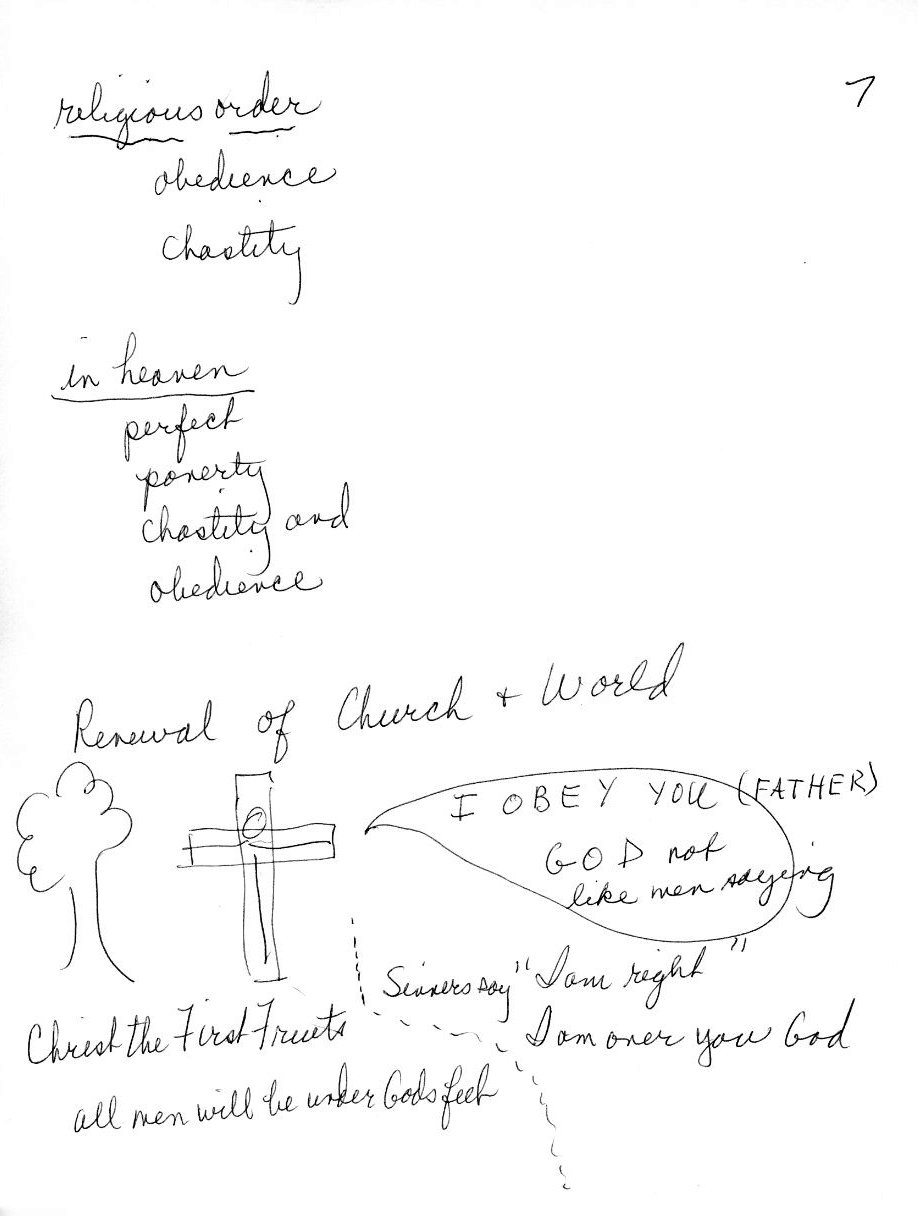 7
religious order
obedience
chastity
in heaven
perfect
poverty
chastity and
obedience
Renewal of Church + World
I OBEY YOU (FATHER)
GOD not
like men saying
Sinners say "I am right"
I am over you God
Christ the First Fruits
all men will be under Gods feet